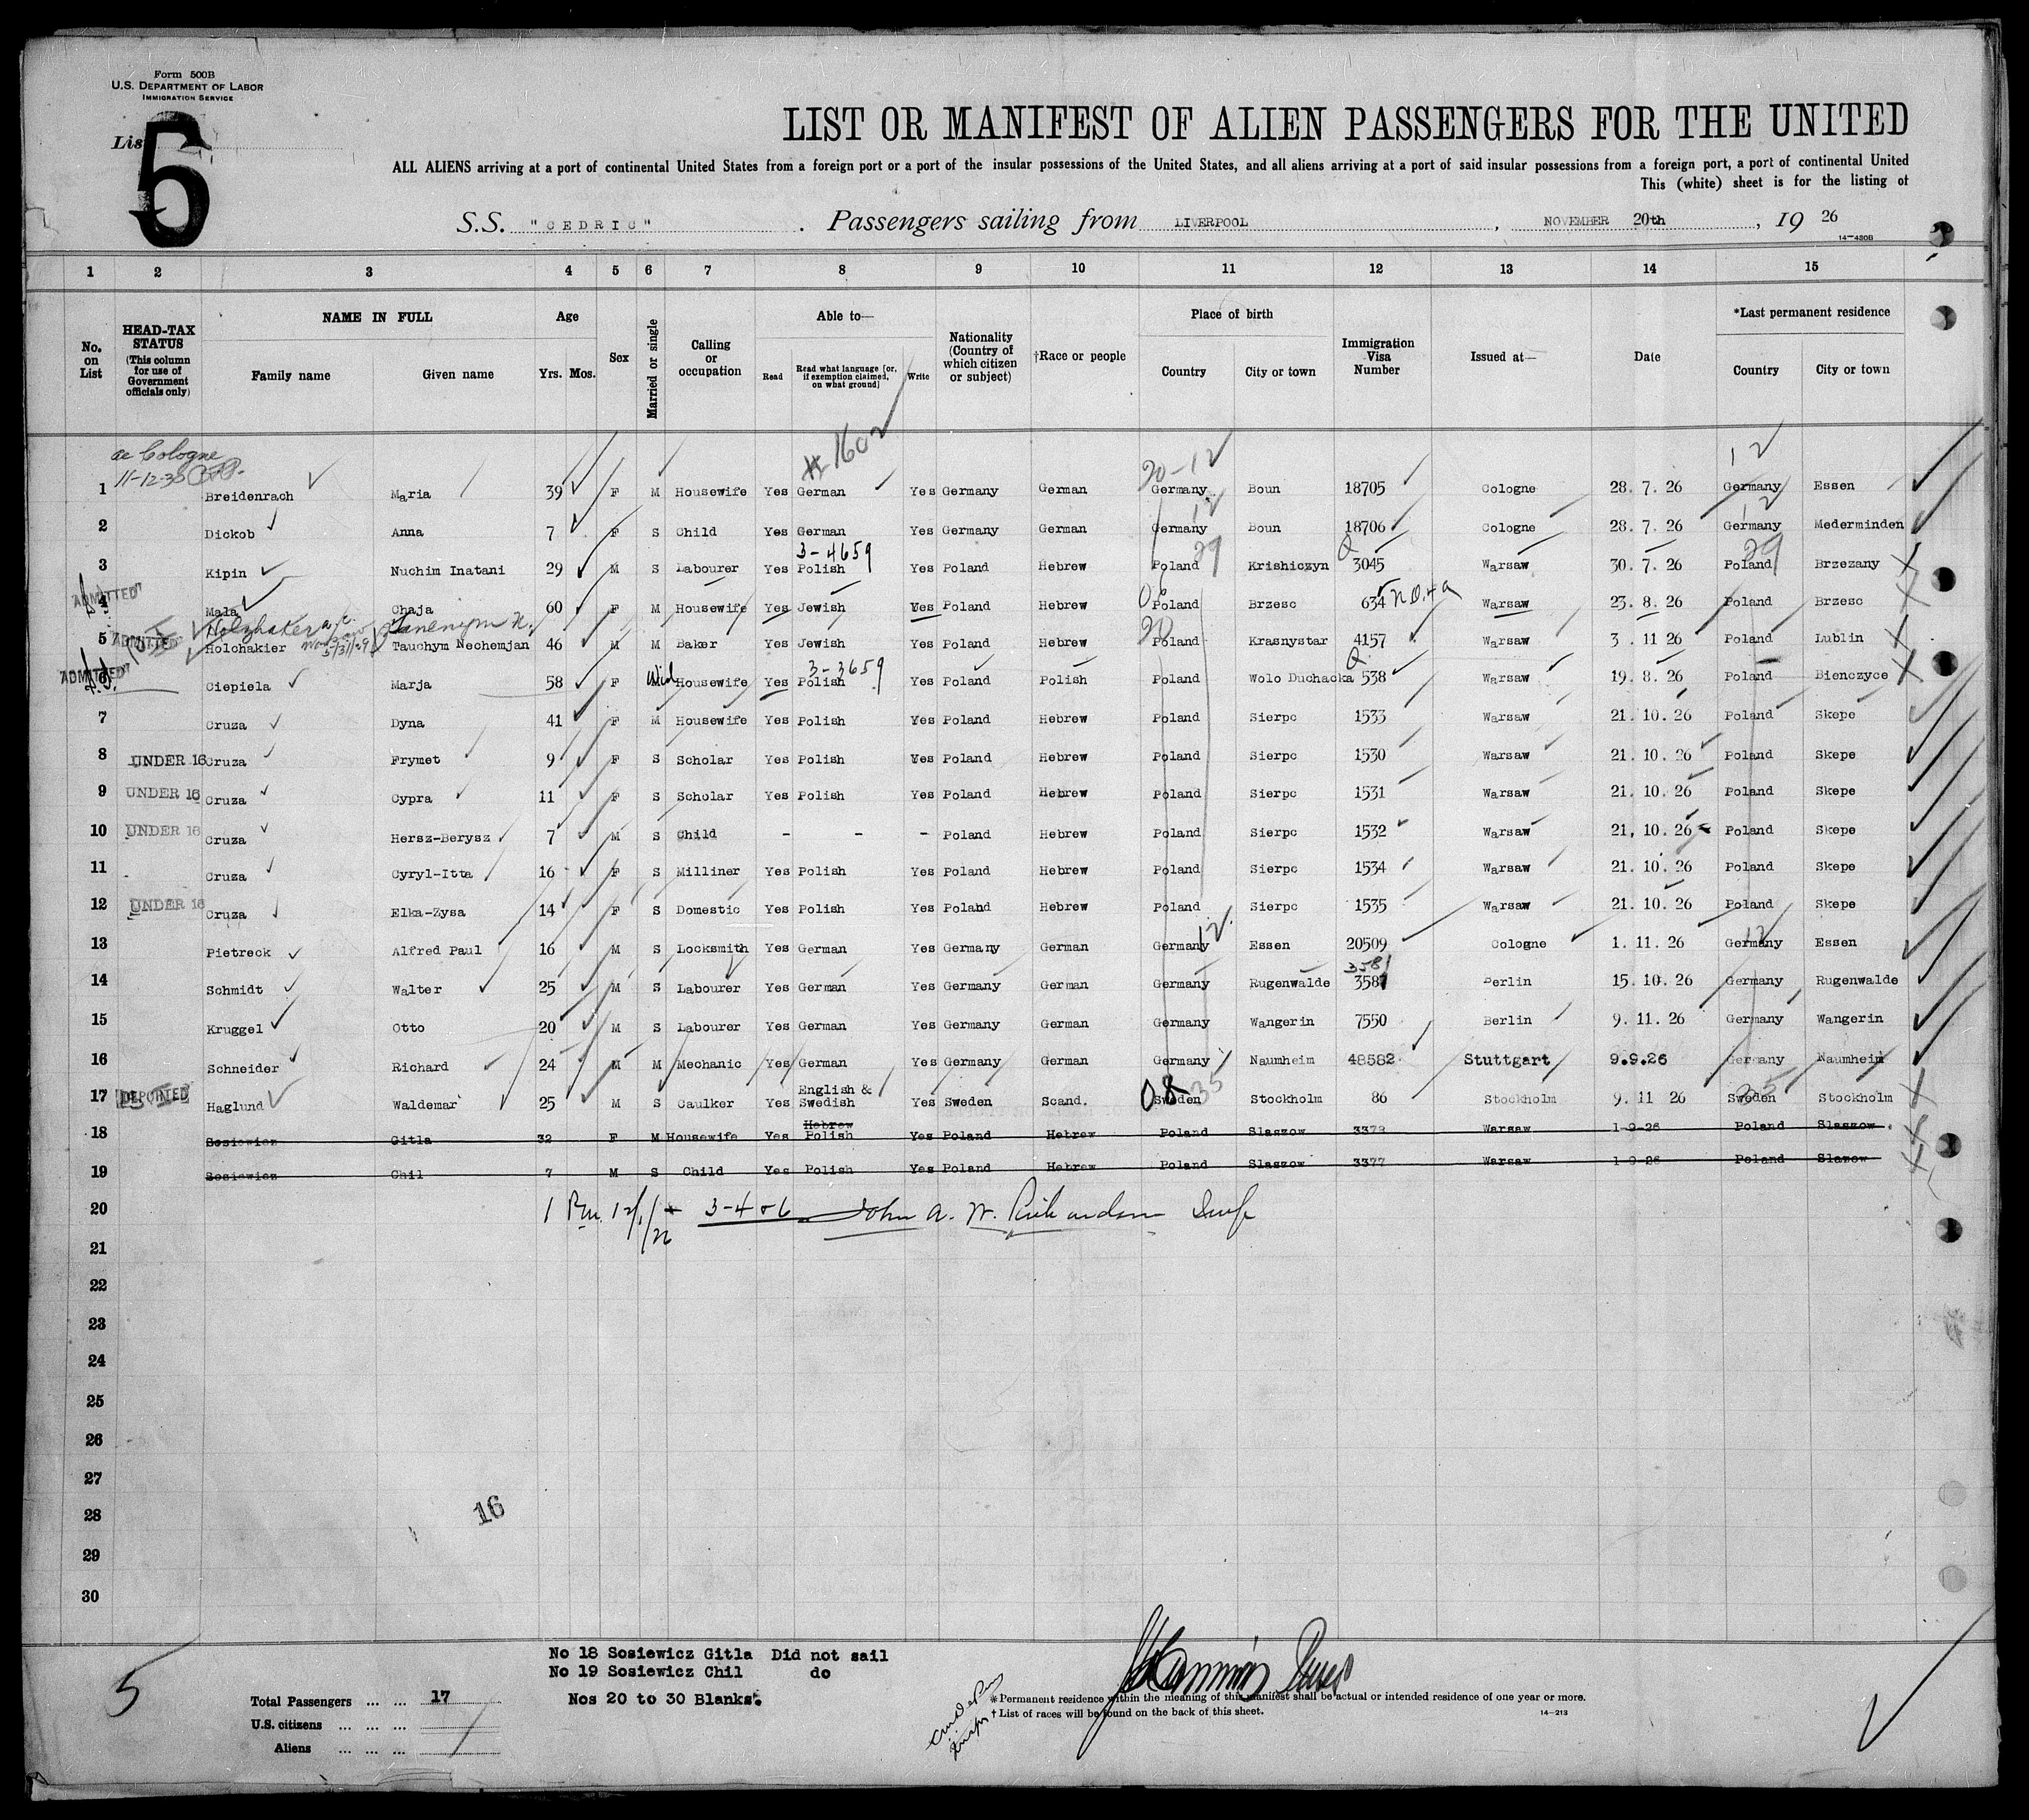 Form 500B
U.S. DEPARTMENT OF LABOR
IMMIGRATION SERVICE
List 5
LIST OR MANIFEST OF ALIEN PASSENGERS FOR THE UNITED
ALL ALIENS arriving at a port of continental United States from a foreign port or a port of the insular possessions of the United States, and all aliens arriving at a port of said insular possessions from a foreign port, a port of continental United
This (white) sheet is for the listing of
S.S. "CEDRIC". Passengers sailing from LIVERPOOL, NOVEMBER 20th, 1926
14—480B
1 2 3 4 5 6 7 8 9 10 11 12 13 14 15
No. on List
HEAD-TAX STATUS (This column for use of Government officials only)
NAME IN FULL Family name Given name
Age Yrs. Mos.
Sex
Married or single
Calling or occupation
Able to— Read Read what language [or, if exemption claimed, on what ground] Write
Nationality (Country of which citizen or subject)
†Race or people
Place of birth Country City or town
Immigration Visa Number
Issued at—
Date
*Last permanent residence Country City or town
Cologne # 1602 20-12 12
11-12-35
1 Breidenrach Maria 39 F M Housewife Yes German Yes Germany German Germany Boun 18705 Cologne 28. 7. 26 Germany Essen
12 12
2 Dickob Anna 7 F S Child Yes German Yes Germany German Germany Boun 18706 Cologne 28. 7. 26 Germany Mederminden
3-4659 29 Q 29
3 Kipin Nuchim Inatani 29 M S Labourer Yes Polish Yes Poland Hebrew Poland Krishiczyn 3045 Warsaw 30. 7. 26 Poland Brzezany
ADMITTED 06
4 Mala Chaja 60 F M Housewife Yes Jewish Yes Poland Hebrew Poland Brzesc 634 Warsaw 23. 8. 26 Poland Brzesc
Holzhaker
5 ADMITTED Holchakier Tauchym Nechemjan 46 M M Baker Yes Jewish Yes Poland Hebrew Poland Krasnystar 4157 Warsaw 3. 11 26 Poland Lublin
ADMITTED 3-3659 Q
6 Ciepiela Marja 58 F Wid Housewife Yes Polish Yes Poland Polish Poland Wolo Duchacka 538 Warsaw 19. 8. 26 Poland Bienczyce
7 Cruza Dyna 41 F M Housewife Yes Polish Yes Poland Hebrew Poland Sierpc 1533 Warsaw 21. 10. 26 Poland Skepe
8 UNDER 16 Cruza Frymet 9 F S Scholar Yes Polish Yes Poland Hebrew Poland Sierpc 1530 Warsaw 21. 10. 26 Poland Skepe
9 UNDER 16 Cruza Cypra 11 F S Scholar Yes Polish Yes Poland Hebrew Poland Sierpc 1531 Warsaw 21. 10. 26 Poland Skepe
10 UNDER 16 Cruza Hersz-Berysz 7 M S Child - - - Poland Hebrew Poland Sierpc 1532 Warsaw 21, 10. 26 Poland Skepe
11 Cruza Cyryl-Itta 16 F S Milliner Yes Polish Yes Poland Hebrew Poland Sierpc 1534 Warsaw 21. 10. 26 Poland Skepe
12 UNDER 16 Cruza Elka-Zysa 14 F S Domestic Yes Polish Yes Poland Hebrew Poland Sierpc 1535 Warsaw 21. 10. 26 Poland Skepe
12 12
13 Pietreck Alfred Paul 16 M S Locksmith Yes German Yes Germany German Germany Essen 20509 Cologne 1. 11. 26 Germany Essen
3581
14 Schmidt Walter 25 M S Labourer Yes German Yes Germany German Germany Rugenwalde 3581 Berlin 15. 10. 26 Germany Rugenwalde
15 Kruggel Otto 20 M S Labourer Yes German Yes Germany German Germany Wangerin 7550 Berlin 9. 11. 26 Germany Wangerin
16 Schneider Richard 24 M M Mechanic Yes German Yes Germany German Germany Naumheim 48582 Stuttgart 9.9.26 Germany Naumheim
English & 08 35 35
17 DEPORTED Haglund Waldemar 25 M S Caulker Yes Swedish Yes Sweden Scand. Sweden Stockholm 86 Stockholm 9. 11 26 Sweden Stockholm
Hebrew
18 Sosiewicz Gitla 32 F M Housewife Yes Polish Yes Poland Hebrew Poland Slaszow 3378 Warsaw 1-9-26 Poland Slaszow.
19 Sosiewicz Chil 7 M S Child Yes Polish Yes Poland Hebrew Poland Slaszow 3377 Warsaw 1-9-26 Poland Slazow
20 3-4 John A. W. Richardson
21
22
23
24
25
26
27
28 16
29
30
No 18 Sosiewicz Gitla Did not sail
No 19 Sosiewicz Chil do
Nos 20 to 30 Blanks.
5
Total Passengers ... ... 17
U.S. citizens ... ... ...
Aliens ... ... ...
*Permanent residence within the meaning of this manifest shall be actual or intended residence of one year or more.
† List of races will be found on the back of this sheet.
14—213